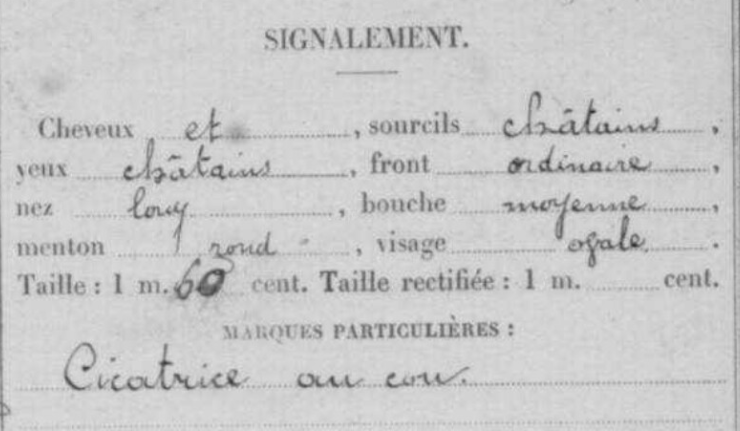 SIGNALEMENT.
Cheveux et, sourcils châtains,
yeux châtains, front ordinaire,
nez long, bouche moyenne,
menton rond, visage ovale.
Taille : 1 m. 60 cent. Taille rectifiée : 1 m. cent.
MARQUES PARTICULIÈRES :
Cicatrice au cou.